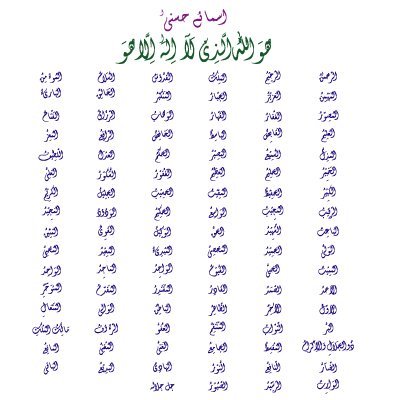 اسمائے حسنیٰ
هو الله الذی لا اله الا هو
الرحمن الرحیم الملک القدوس السلام المؤمن
المهیمن العزیز الجبار المتکبر الخالق الباریٔ
المصور الغفار القهار الوهاب الرزاق الفتاح
العلیم القابض الباسط الخافض الرافع المعز
المذل السمیع البصیر الحکم العدل اللطیف
الخبیر الحلیم العظیم الغفور الشکور العلی
الکبیر الحفیظ المقیت الحسیب الجلیل الکریم
الرقیب المجیب الواسع الحکیم الودود المجید
الباعث الشهید الحق الوکیل القوی المتین
الولی الحمید المحصی المبدیٔ المعید المحیی
الممیت الحی القیوم الواجد الماجد الواحد
الاحد الصمد القادر المقتدر المقدم المؤخر
الاول الآخر الظاهر الباطن الوالی المتعال
البر التواب المنتقم العفو الرؤف مالک الملک
ذوالجلال والاکرام المقسط الجامع الغنی المغنی المانع
الضار النافع النور الهادی البدیع الباقی
الوارث الرشید الصبور جل جلاله